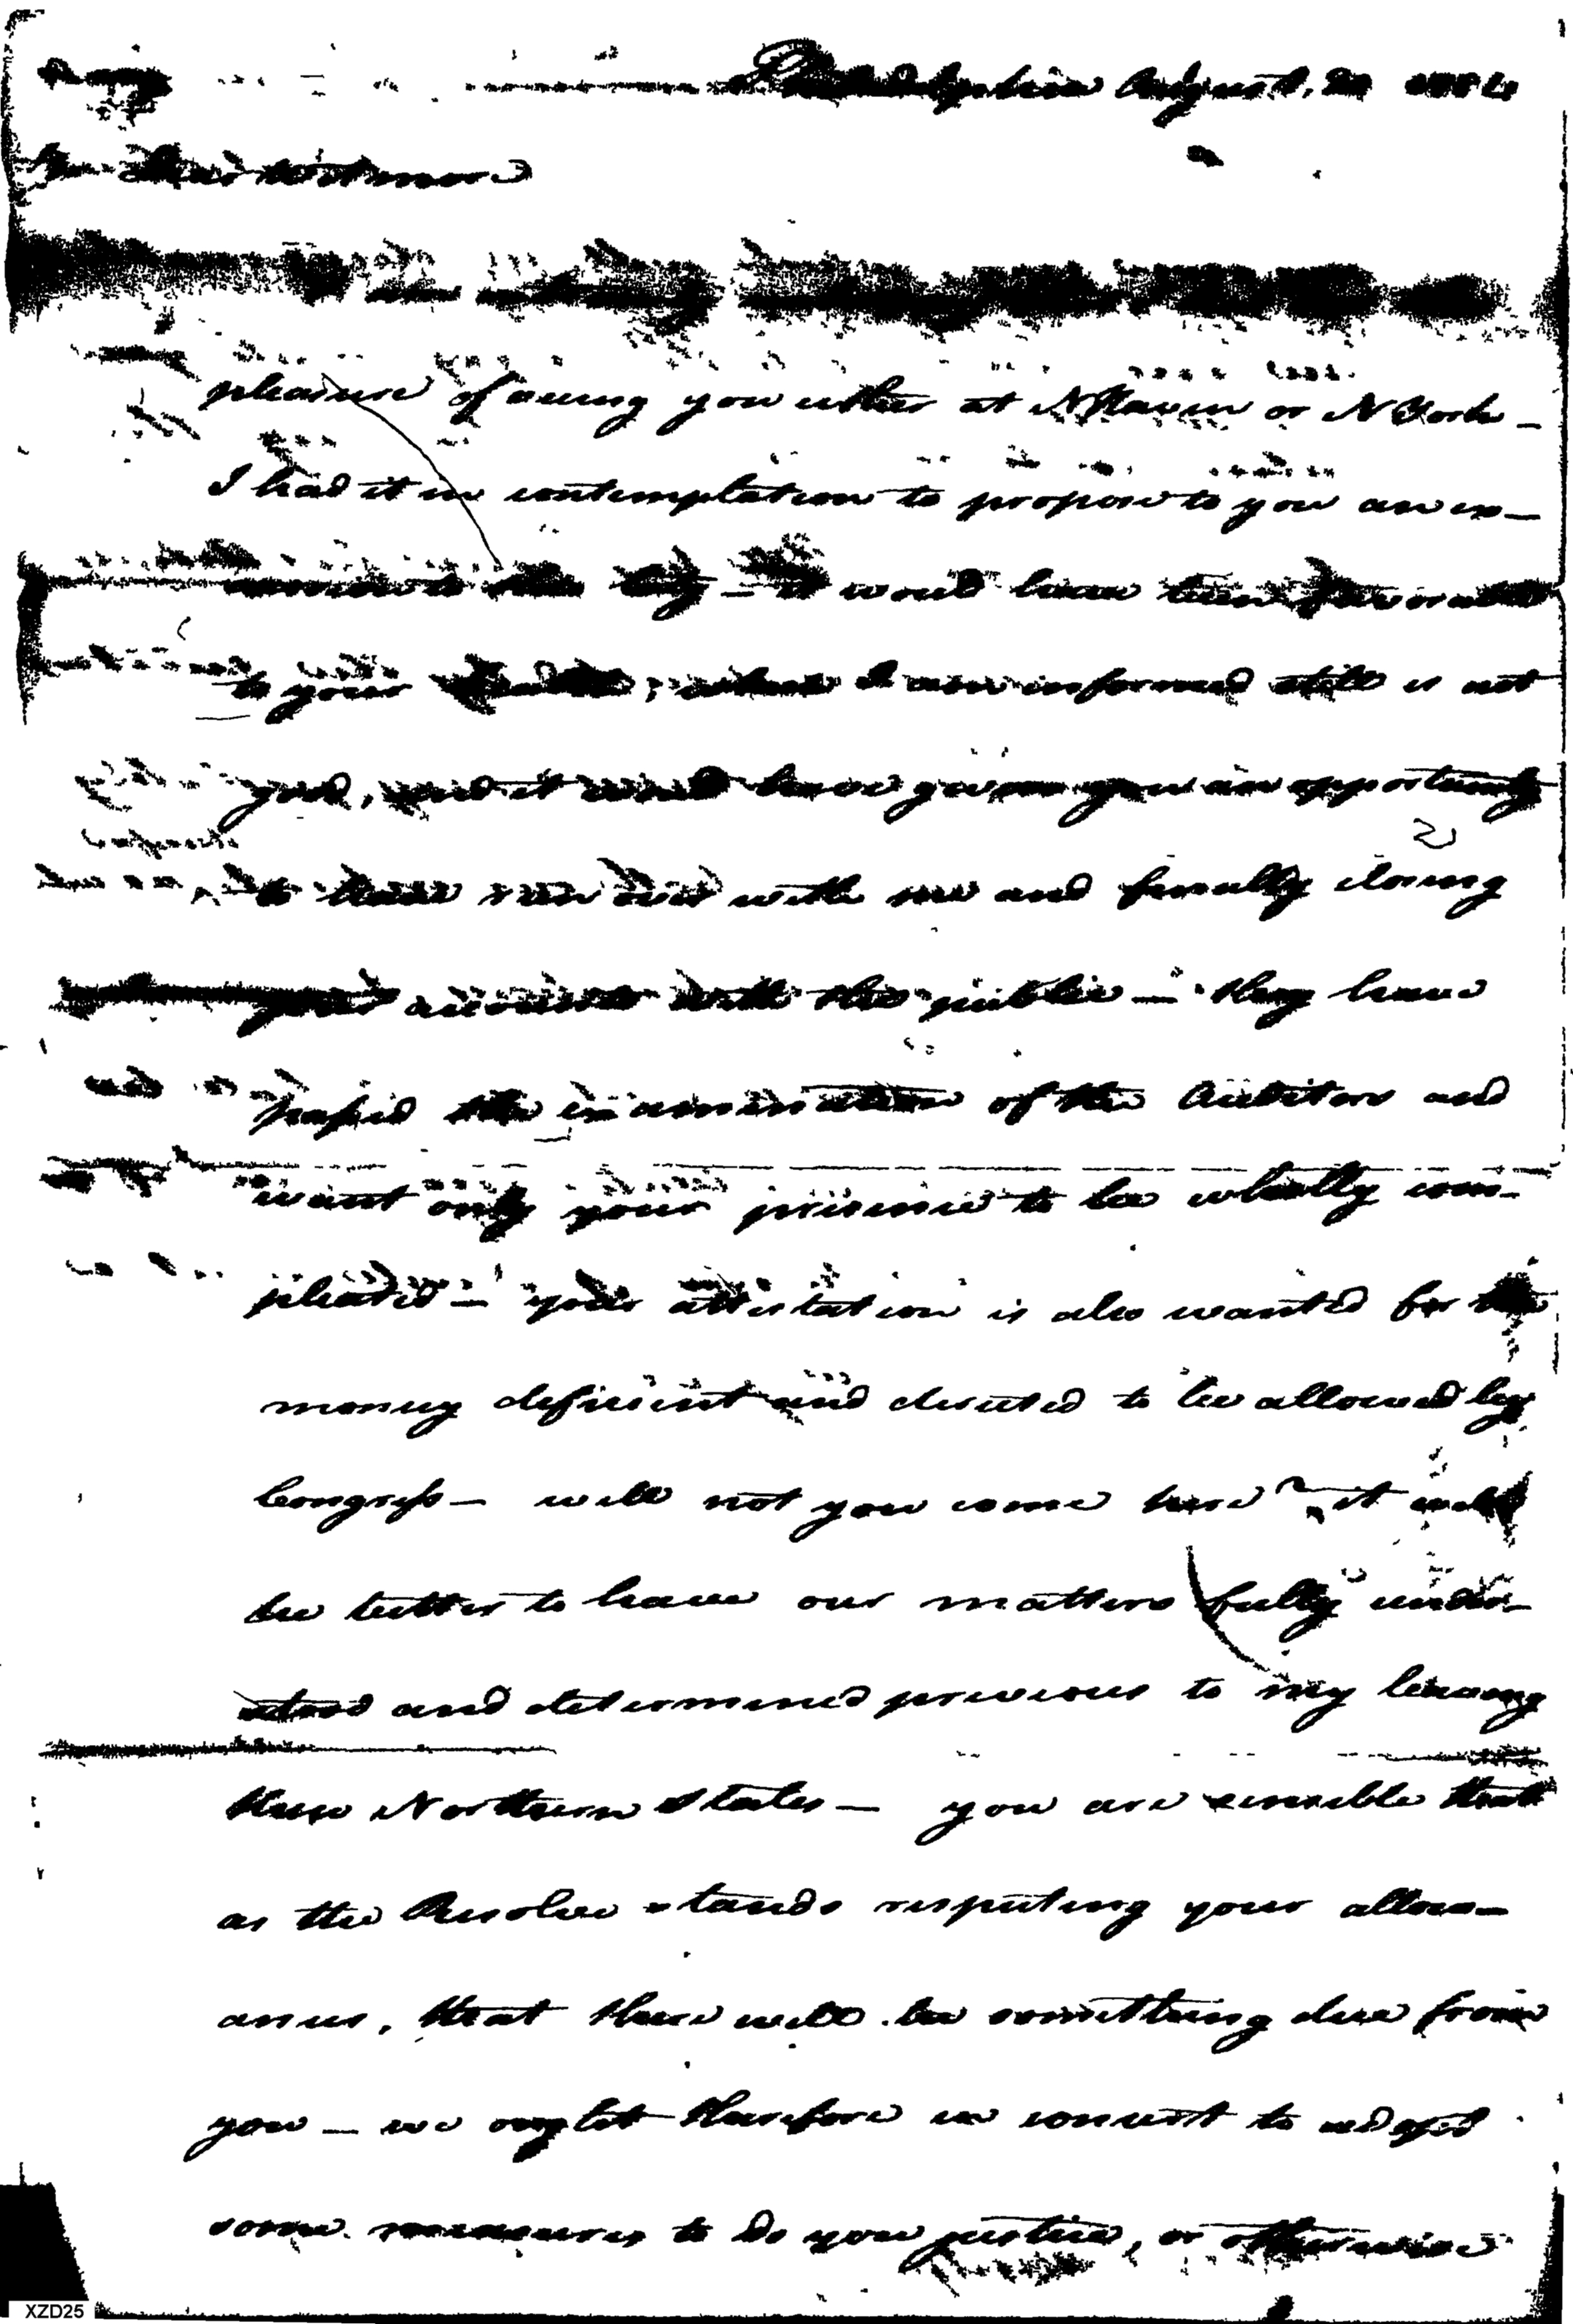 Philadelphia August. 20 1784
My dear Watmore
pleasure of seeing you either at N Haven or N York —
I had it in contemplation to propose to you an ex—
to this City — it would have been favorable
to your health, which I am informed still is not
good, and it would have given you an opportunity
to have run over with me and finally closing
your accounts with the public — they have
passed the examination of the Auditors and
want only your presence to be wholly com—
pleated — your attestation is also wanted for the
money deficient and directed to be allowed by
Congress — will not you come here? it will
be better to leave our matters fully under—
stood and determined previous to my leaving
these Northern States — you are sensible that
as the Resolve stands respecting your allow—
ances, that there will be something due from
you — we ought therefore in concert to adopt
some measures to do you justice, or otherwise
XZD25